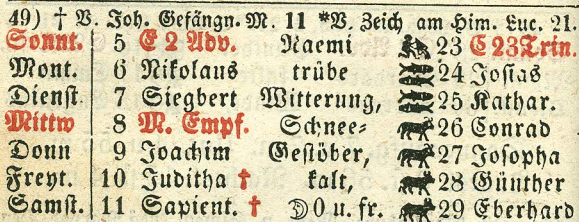 49) † V. Joh. Gefängn. M. 11 *V. Zeich am Him. Luc. 21.
Sonnt. 5 E 2 Adv. Naemi 23 E 23 Trin.
Mont. 6 Nikolaus trübe 24 Josias
Dienst 7 Siegbert Witterung, 25 Kathar.
Mittw 8 M. Empf. Schnee- 26 Conrad
Donn 9 Joachim Gestöber, 27 Josopha
Freyt. 10 Juditha † kalt, 28 Günther
Samst. 11 Sapient. † ☽ 0 u. fr. 29 Eberhard